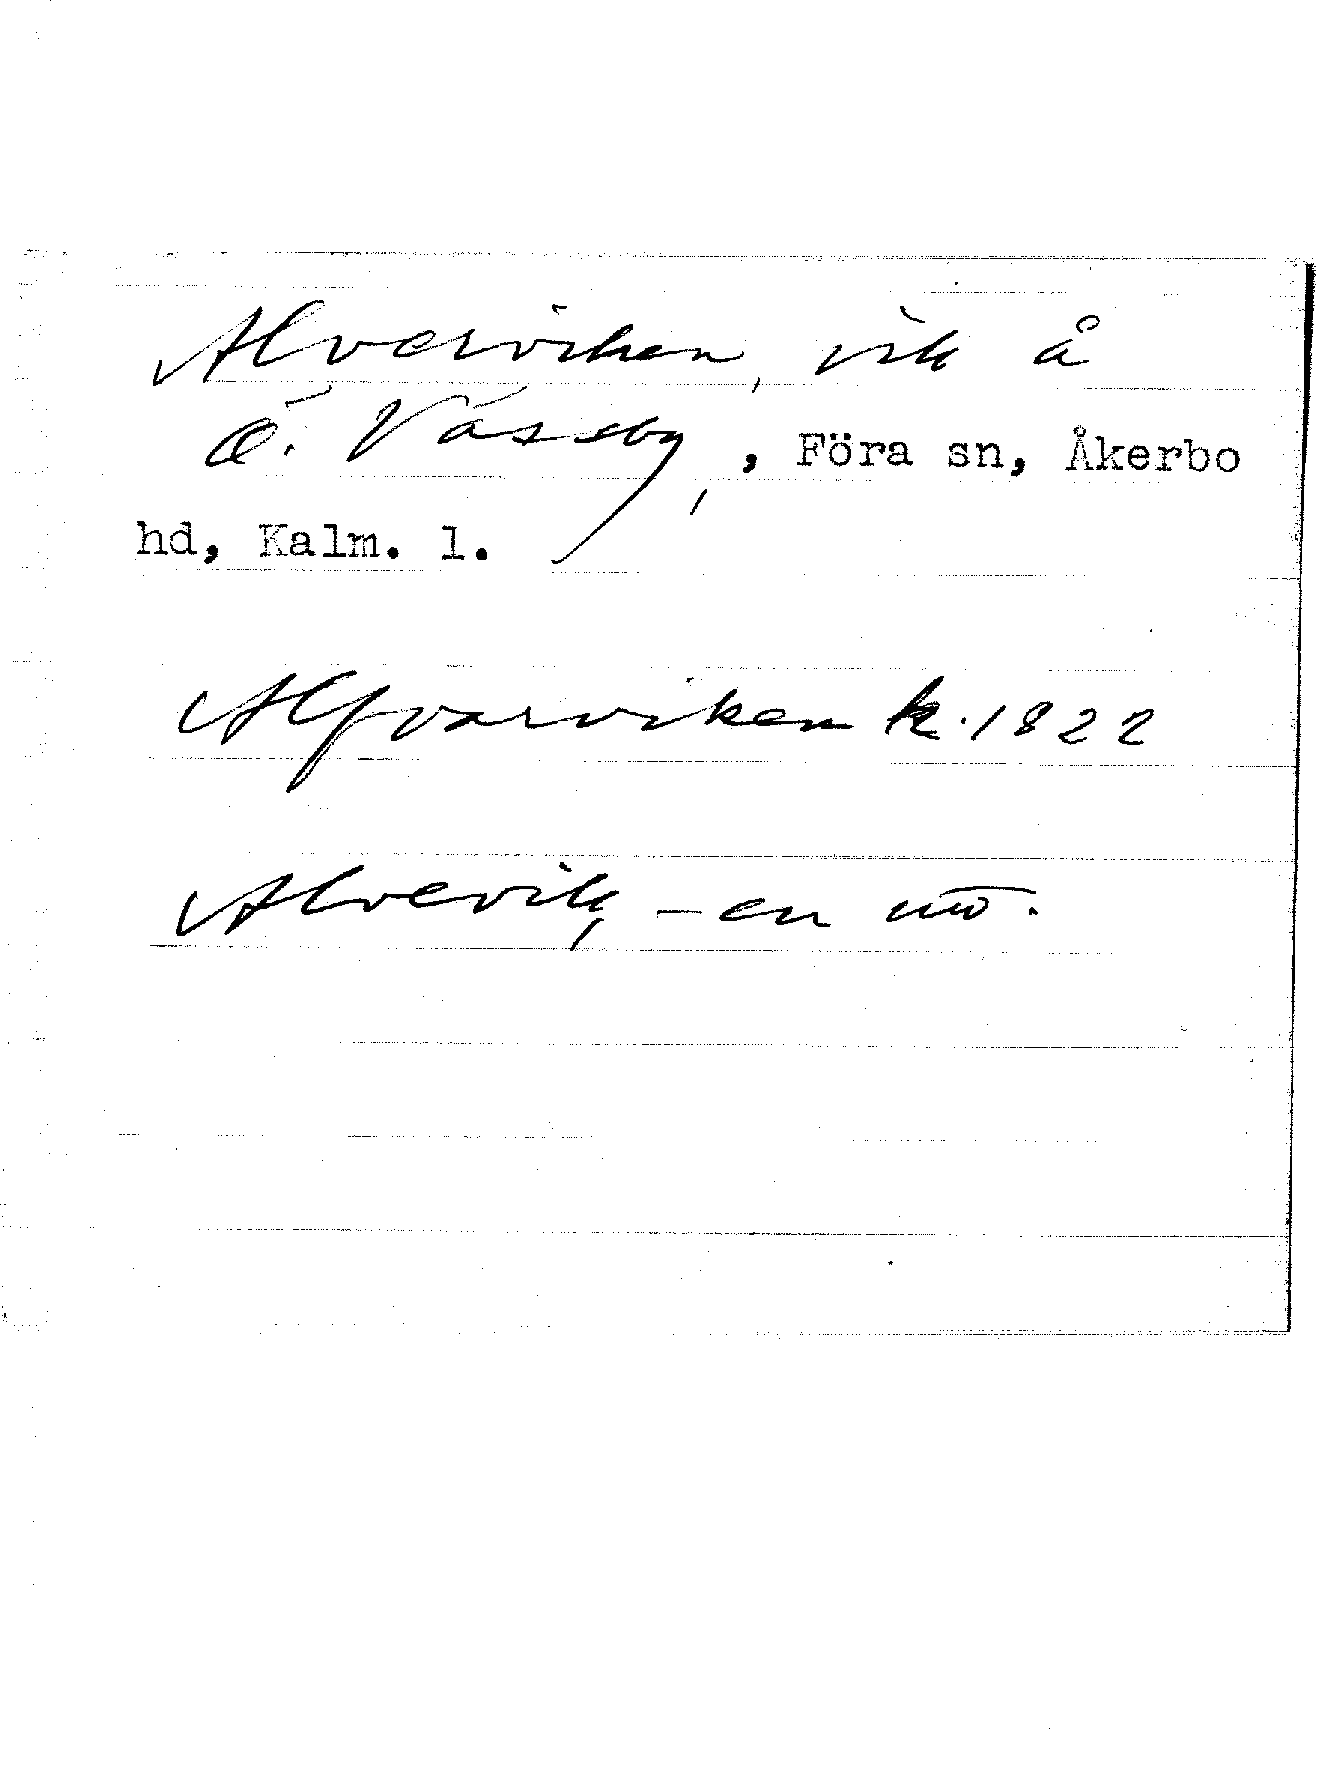 Alverviken, vik å
Ö. Vässby, , Föra sn, Åkerbo
hd, Kalm. l.
Alfvarviken k. 1822
Alvevik, -en